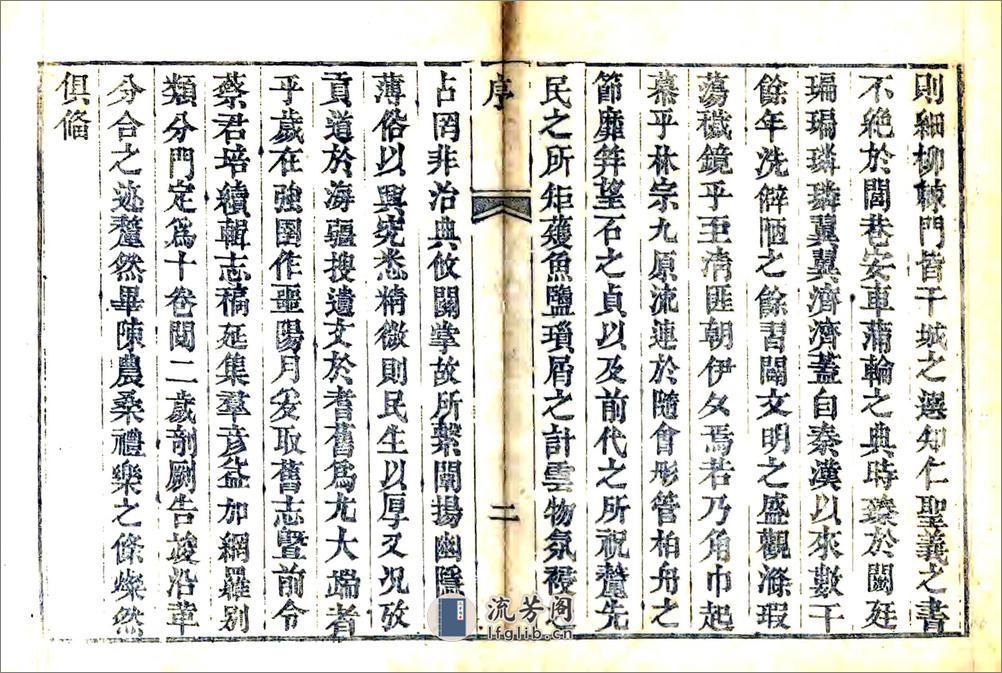 則細柳棘門皆干城之選知仁聖義之書
不絕於閭巷安車蒲輪之典時臻於闕廷
瑞瑒璘璘翼翼濟濟蓋自秦漢以來數千
餘年洗僻陋之餘習闢文明之盛觀滌瑕
蕩穢鏡乎至淸匪朝伊夕焉若乃角巾起
慕乎林宗九原流連於隨會彤管柏舟之
節靡笄望石之貞以及前代之所祝釐先
民之所矩矱魚鹽瑣屑之計雲物氛祲之
序
二
占罔非治典攸關掌故所繫闡揚幽隱
薄俗以興究悉精微則民生以厚又況攷
貢道於海疆搜遺文於耆舊爲尤大端者
乎歲在強圉作噩陽月爰取舊志曁前令
蔡君培續輯志稿延集羣彥益加網羅別
類分門定爲十卷閱二歲剞劂告竣沿革
分合之迹釐然畢陳農桑禮樂之條燦然
俱備
流芳阁
lfglib.cn